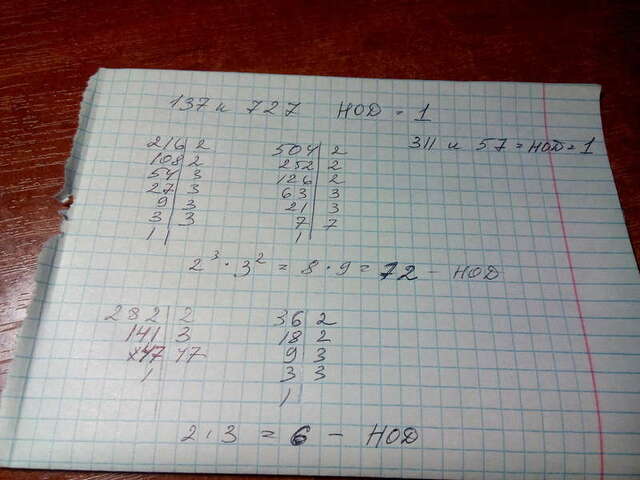 137 и 727 НОД = 1
311 и 57 = НОД = 1
216 | 2 504 | 2
108 | 2 252 | 2
54 | 3 126 | 2
27 | 3 63 | 3
9 | 3 21 | 3
3 | 3 7 | 7
1 | 1 |
2³ · 3² = 8 · 9 = 72 – НОД
282 | 2 36 | 2
141 | 3 18 | 2
47 | 47 9 | 3
1 | 3 | 3
1 |
2 · 3 = 6 – НОД